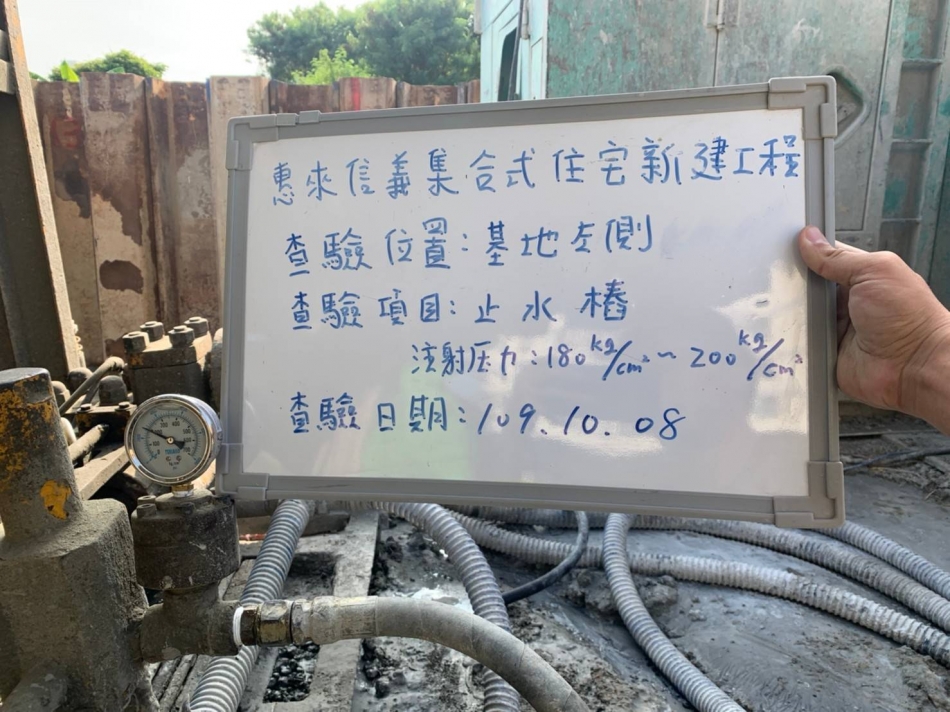 惠來信義集合式住宅新建工程
查驗位置:基地左側
查驗項目:止水樁
注射压力:180kg/cm²~200kg/cm²
查驗日期:109.10.08